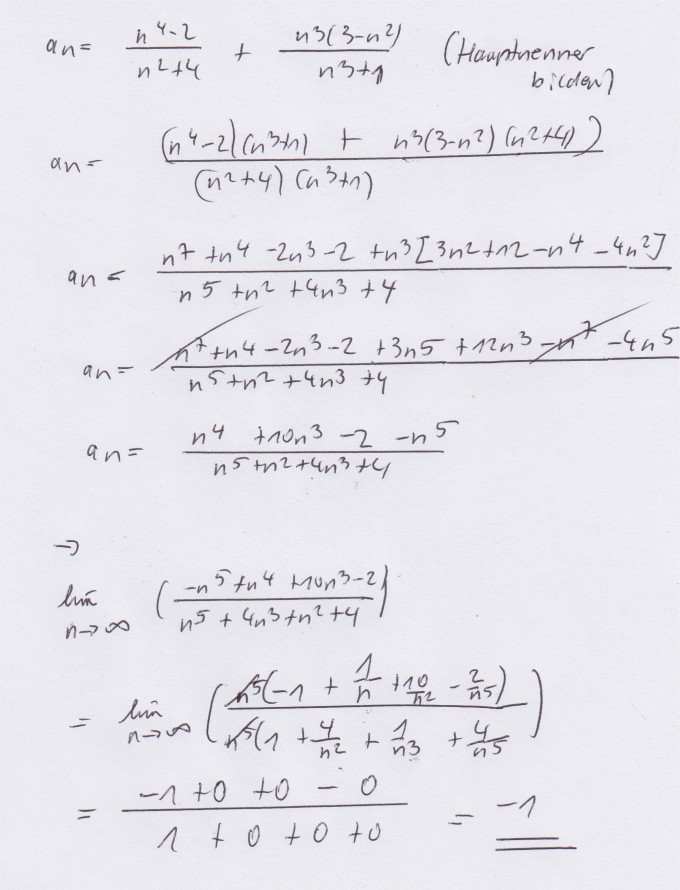 an = (n^4-2)/(n^2+4) + n3(3-n^2)/(n^3+1) (Hauptnenner
bilden)
an = ((n^4-2)(n^3+1) + n3(3-n^2)(n^2+4))/((n^2+4)(n^3+1))
an = (n^7+n^4-2n^3-2+n^3[3n^2+12-n^4-4n^2])/(n^5+n^2+4n^3+4)
an = (n^7+n^4-2n^3-2+3n^5+12n^3-n^7-4n^5)/(n^5+n^2+4n^3+4)
an = (n^4+10n^3-2-n^5)/(n^5+n^2+4n^3+4)
→
lim n→∞ ((-n^5+n^4+10n^3-2)/(n^5+4n^3+n^2+4))
= lim n→∞ ((n^5(-1+1/n+10/n^2-2/n^5))/(n^5(1+4/n^2+1/n^3+4/n^5)))
= (-1+0+0-0)/(1+0+0+0) = -1